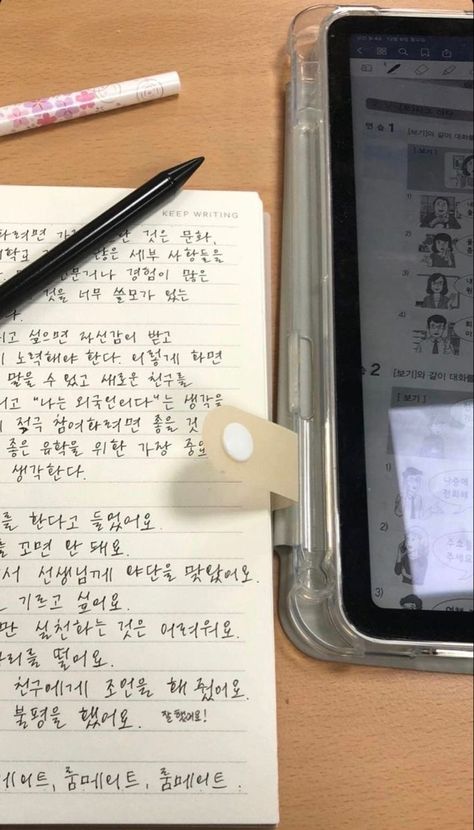 KEEP WRITING
하려면 가 한 것은 문화,
않은 세부 사항들을
문거나 경험이 많은
것을 너무 쓸모가 있는
다.
고 싶으면 자신감이 받고
노력해야 한다. 이렇게 하면
말을 수 있고 새로운 친구를
고 "나는 외국인이다"는 생각을
적극 참여하려면 좋을 것
좋은 유학을 위한 가장 중요
생각한다.
를 한다고 들었어요.
를 꼬면 안 돼요.
서 선생님께 야단을 맞았어요.
기르고 싶어요.
만 실천하는 것은 어려워요.
다리를 떨어요.
친구에게 조언을 해 줬어요.
불평을 했어요. 잘했어요!
메이트, 룸메이트, 룸메이트.
연습 1 [보기]와 같이 대화를
[보기]
2)
3)
4)
2 [보기]와 같이 대화
[보기]
나중에
전화해
2)
주소
주세요
3)